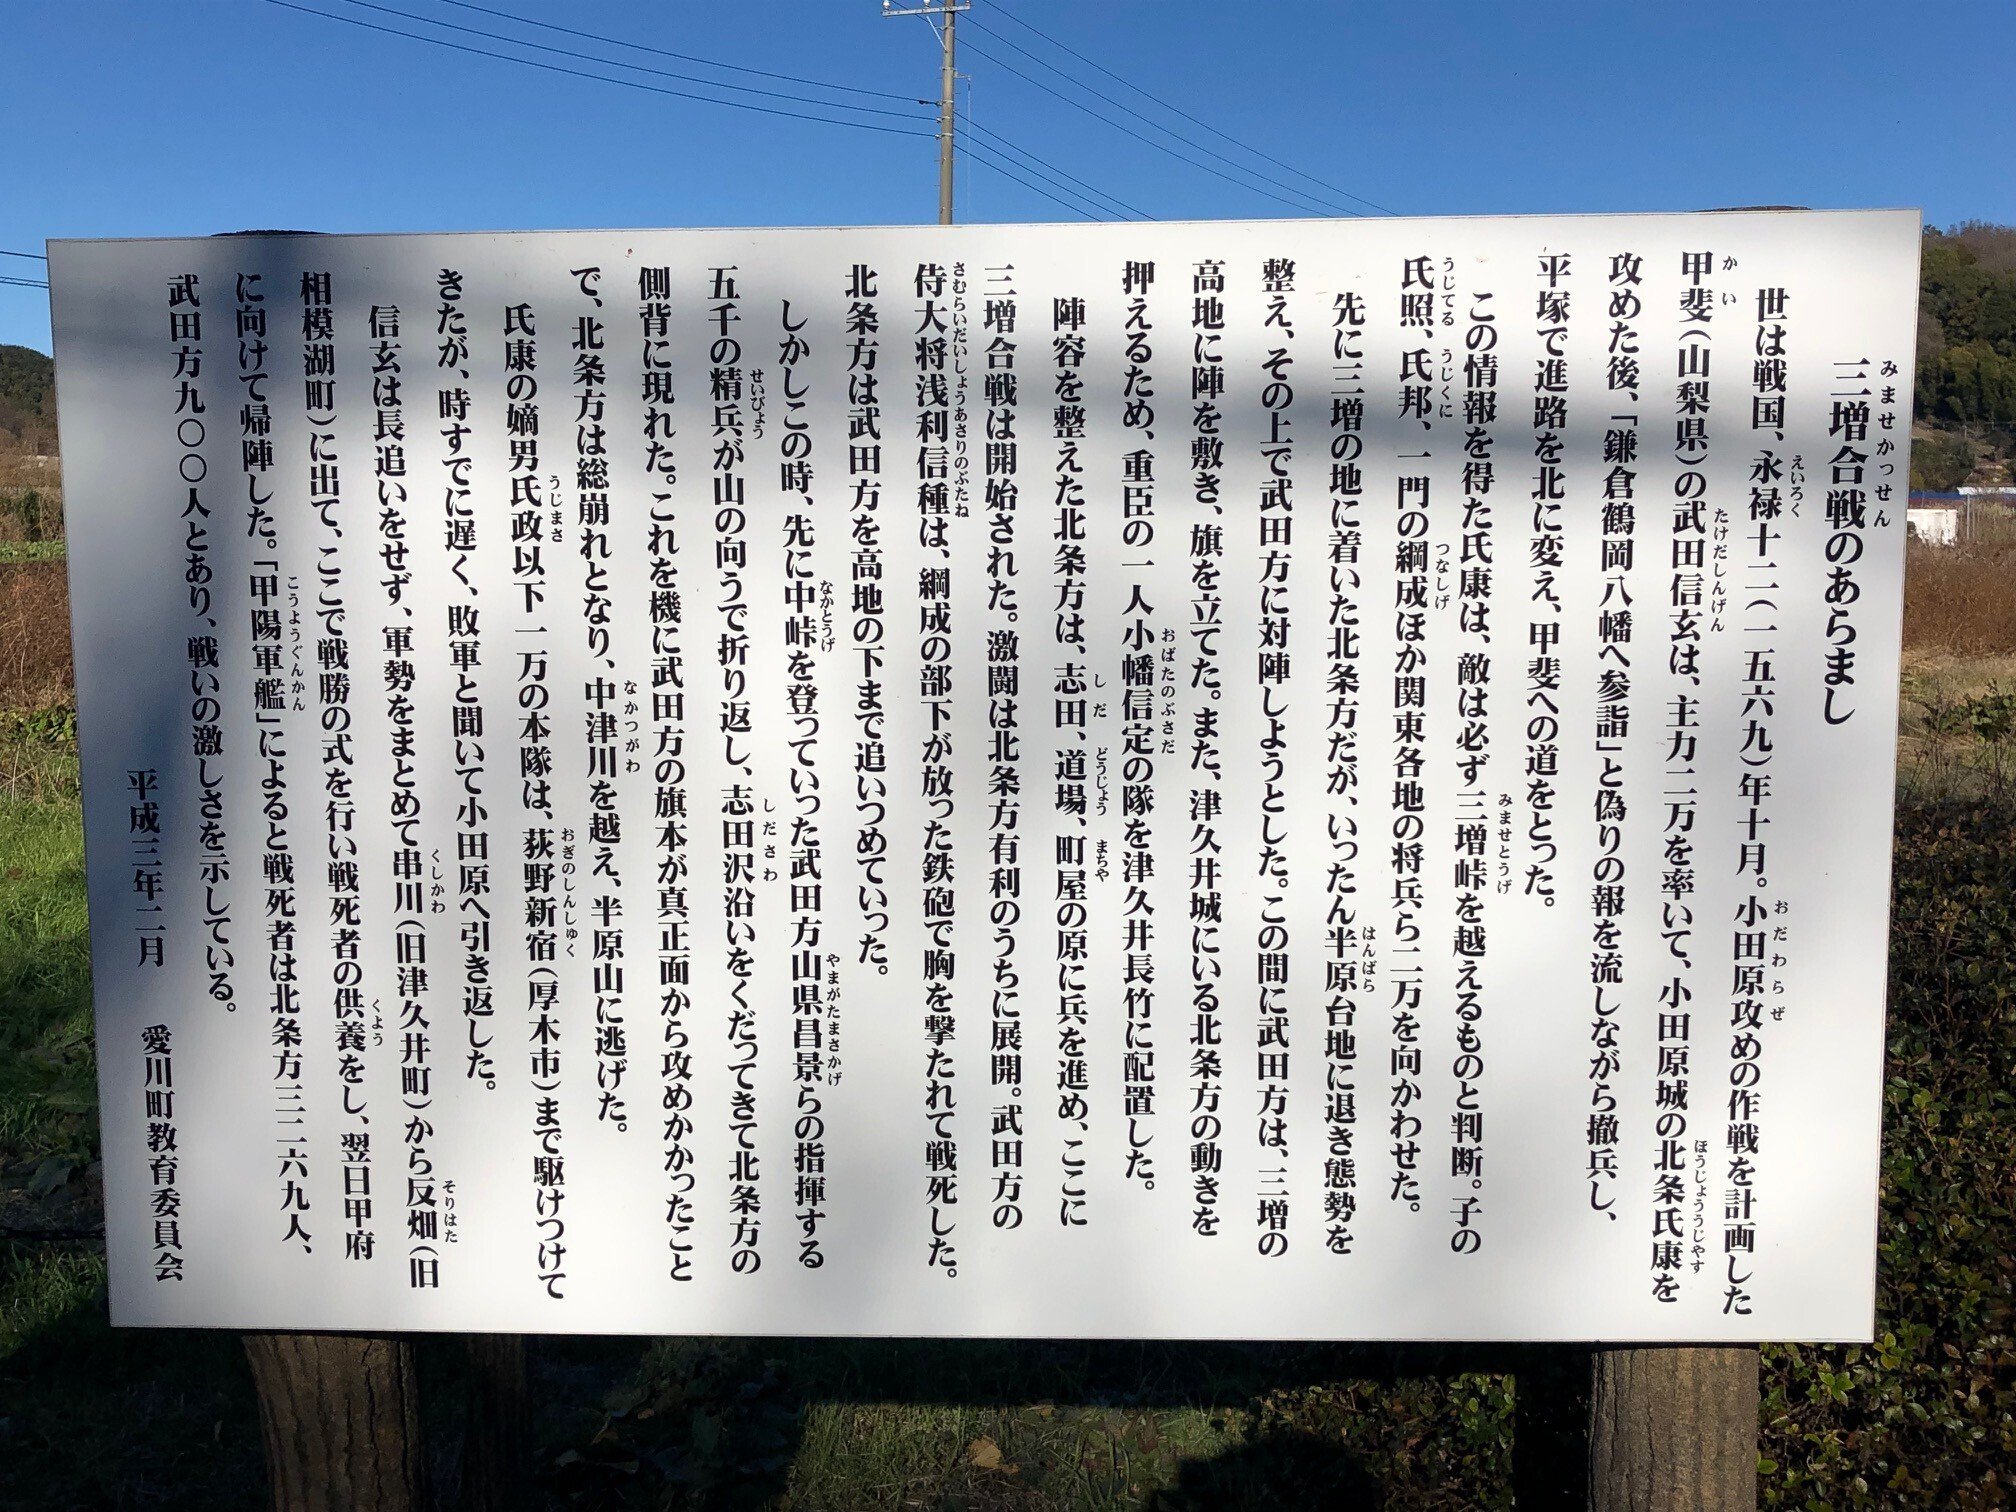 三増合戦のあらまし
世は戦国、永禄十二(一五六九)年十月。小田原攻めの作戦を計画した
甲斐(山梨県)の武田信玄は、主力二万を率いて、小田原城の北条氏康を
攻めた後、「鎌倉鶴岡八幡へ参詣」と偽りの報を流しながら撤兵し、
平塚で進路を北に変え、甲斐への道をとった。
この情報を得た氏康は、敵は必ず三増峠を越えるものと判断。子の
氏照、氏邦、一門の綱成ほか関東各地の将兵ら二万を向かわせた。
先に三増の地に着いた北条方だが、いったん半原台地に退き態勢を
整え、その上で武田方に対陣しようとした。この間に武田方は、三増の
高地に陣を敷き、旗を立てた。また、津久井城にいる北条方の動きを
押えるため、重臣の一人小幡信定の隊を津久井長竹に配置した。
陣容を整えた北条方は、志田、道場、町屋の原に兵を進め、ここに
三増合戦は開始された。激闘は北条方有利のうちに展開。武田方の
侍大将浅利信種は、綱成の部下が放った鉄砲で胸を撃たれて戦死した。
北条方は武田方を高地の下まで追いつめていった。
しかしこの時、先に中峠を登っていった武田方山県昌景らの指揮する
五千の精兵が山の向うで折り返し、志田沢沿いをくだってきて北条方の
側背に現れた。これを機に武田方の旗本が真正面から攻めかかったこと
で、北条方は総崩れとなり、中津川を越え、半原山に逃げた。
氏康の嫡男氏政以下一万の本隊は、荻野新宿(厚木市)まで駆けつけて
きたが、時すでに遅く、敗軍と聞いて小田原へ引き返した。
信玄は長追いをせず、軍勢をまとめて串川(旧津久井町)から反畑(旧
相模湖町)に出て、ここで戦勝の式を行い戦死者の供養をし、翌日甲府
に向けて帰陣した。「甲陽軍艦」によると戦死者は北条方三二六九人、
武田方九〇〇人とあり、戦いの激しさを示している。
平成三年二月 愛川町教育委員会